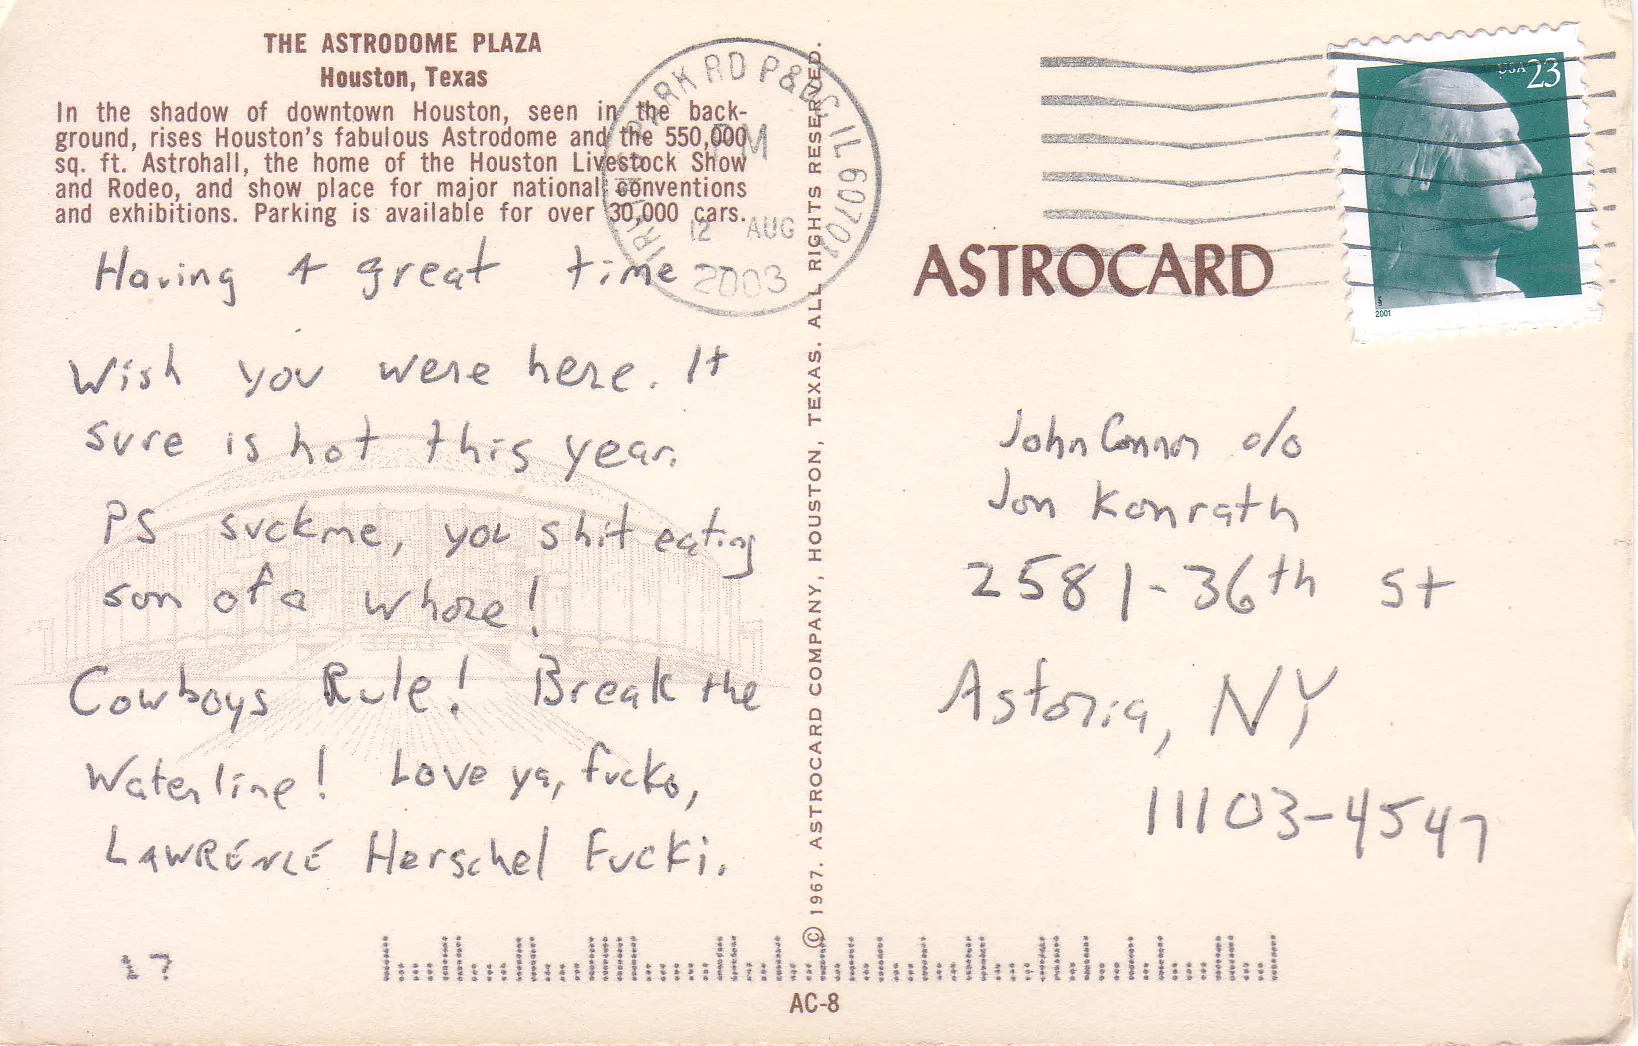 THE ASTRODOME PLAZA
Houston, Texas
In the shadow of downtown Houston, seen in the back-
ground, rises Houston's fabulous Astrodome and the 550,000
sq. ft. Astrohall, the home of the Houston Livestock Show
and Rodeo, and show place for major national conventions
and exhibitions. Parking is available for over 30,000 cars.
Having A great time
Wish you were here. It
sure is hot this year.
PS suckme, you shit eating
son of a whore!
Cowboys Rule! Break the
Waterline! Love ya, fucko,
LAWRENCE Herschel Fucki.
17
© 1967. ASTROCARD COMPANY, HOUSTON, TEXAS. ALL RIGHTS RESERVED.
AC-8
PARK RD P&DC IL 60701
PM
12 AUG
2003
USA 23
2001
ASTROCARD
John Connor c/o
Jon Konrath
2581-36th St
Astoria, NY
11103-4547